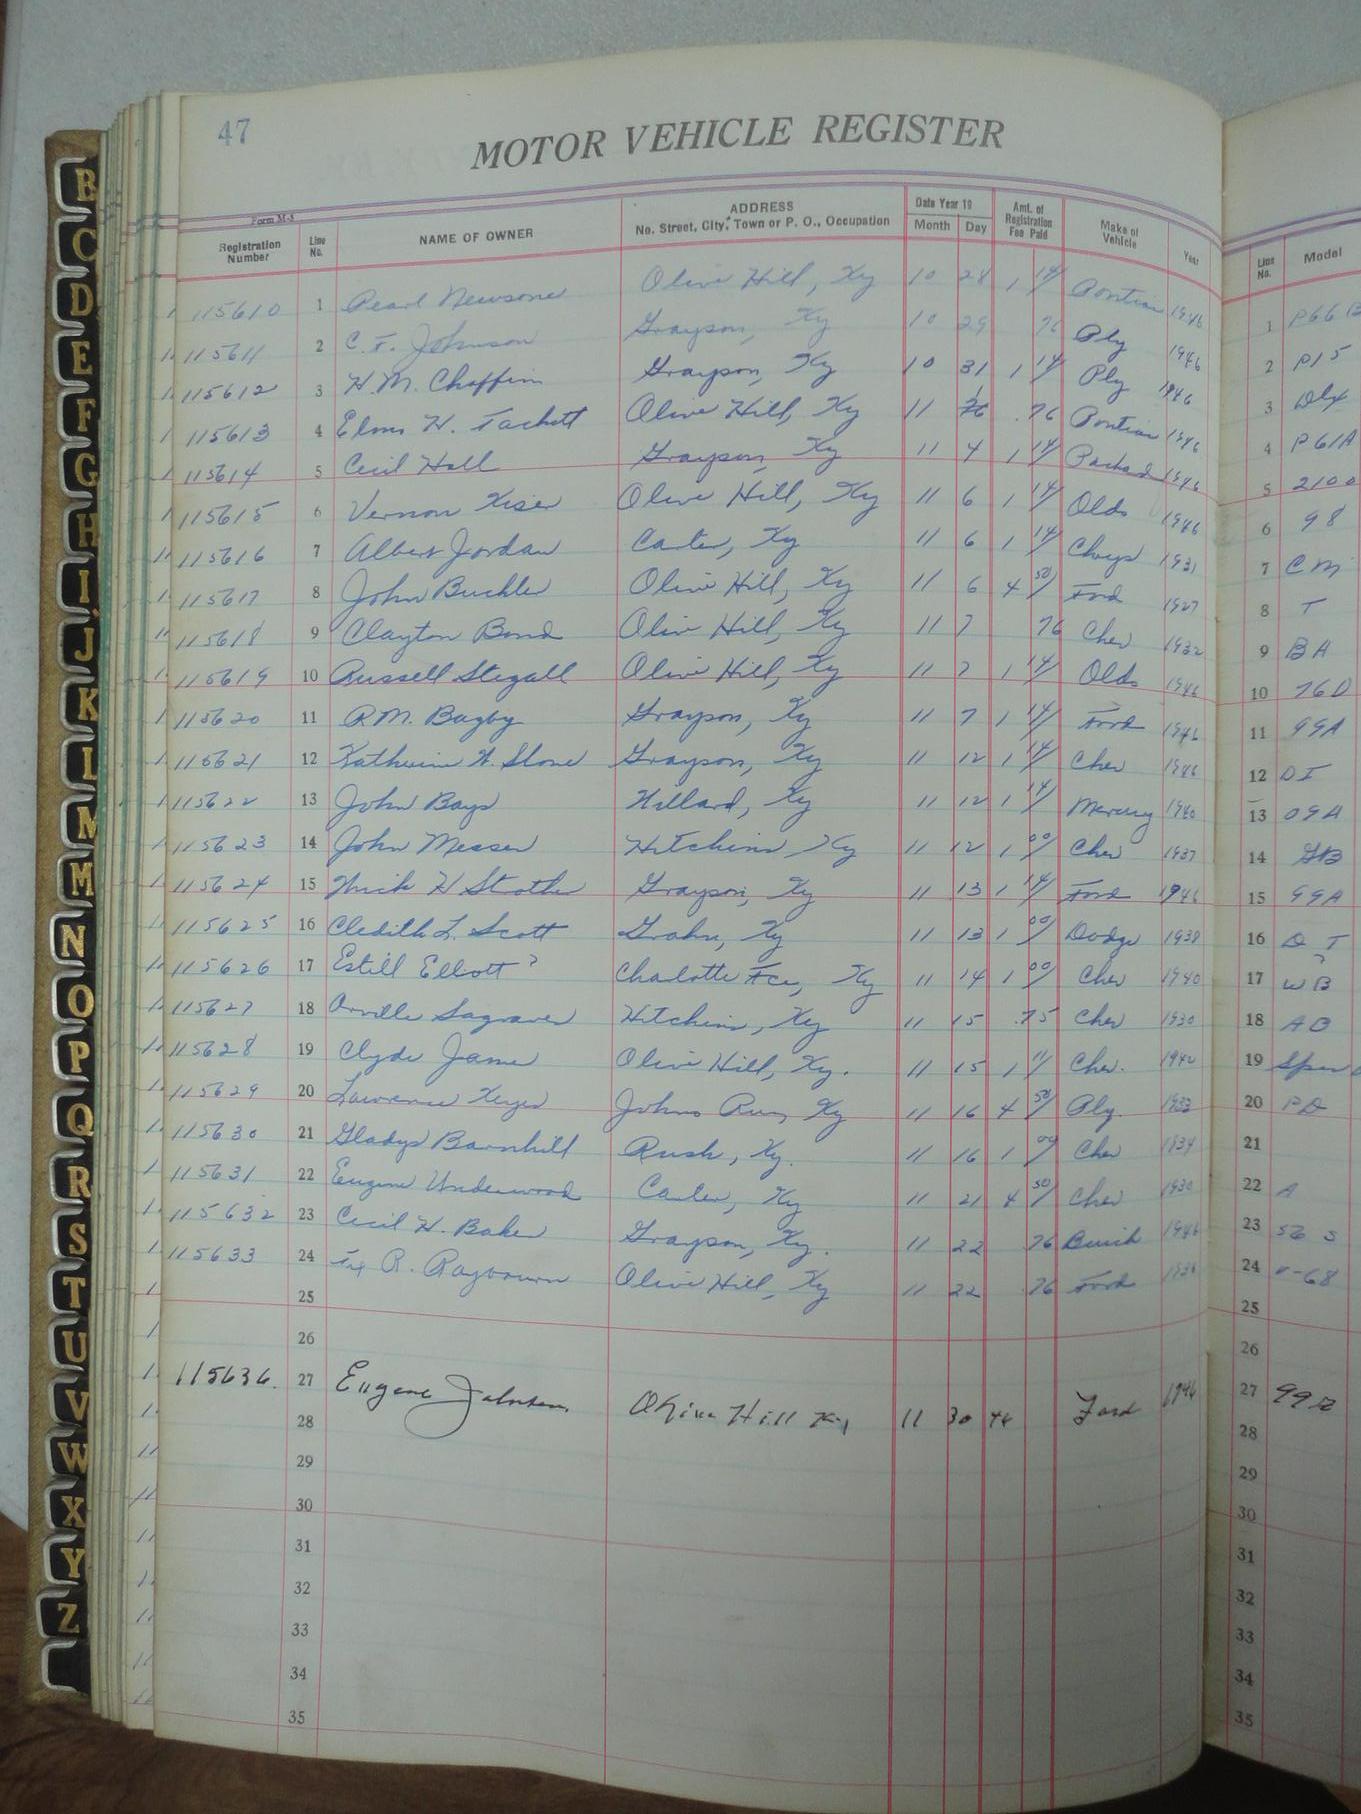 47
MOTOR VEHICLE REGISTER
Form M-5
Registration Number Line No. NAME OF OWNER ADDRESS No. Street, City, Town or P. O., Occupation Date Year 19 Month Day Amt. of Registration Fee Paid Make of Vehicle Year Line No. Model
115610 1 Pearl Newsome Olive Hill, Ky 10 28 1 14 Pontiac 1946 1
115611 2 C. F. Johnson Grayson, Ky 10 29 76 Ply 1946 2 P15
115612 3 H. M. Chaffin Grayson, Ky 10 31 1 14 Ply 1946 3 Dlx
115613 4 H. Tackett Olive Hill, Ky 11 .76 Pontiac 1946 4 P61A
115614 5 Cecil Hall Grayson, Ky 11 4 1 14 Packard 1946 5 2100
115615 6 Vernon Kiser Olive Hill, Ky 11 6 1 14 Olds 1946 6 98
115616 7 Albert Jordan Carter, Ky 11 6 1 14 Chrys 1931 7 CM
115617 8 John Buckler Olive Hill, Ky 11 6 4 50 Ford 1927 8 T
115618 9 Clayton Bond Olive Hill, Ky 11 7 76 Chev 1932 9 BA
115619 10 Russell Stegall Olive Hill, Ky 11 7 1 14 Olds 1946 10 76D
115620 11 R. M. Bagby Grayson, Ky 11 7 1 14 Ford 1946 11 99A
115621 12 Katherine W. Stone Grayson, Ky 11 12 1 14 Chev 1946 12 DI
115622 13 John Bays Willard, Ky 11 12 1 14 Mercury 1940 13 09A
115623 14 John Messer Hitchins Ky 11 12 1 00 Chev 1937 14 GB
115624 15 H Strother Grayson, Ky 11 13 1 14 Ford 1946 15 99A
115625 16 Cledith L. Scott Grahn, Ky 11 13 1 00 Dodge 1938 16 D
115626 17 Estill Elliott ? Charlotte Fce, Ky 11 14 1 00 Chev 1940 17 WB
115627 18 Orville Sagraves Hitchins, Ky 11 15 .75 Chev 1930 18
115628 19 Clyde James Olive Hill, Ky. 11 15 1 Chev. 1940 19
115629 20 Lawrence Keyes Johns Run, Ky 11 16 4 50 Ply. 1933 20 PD
115630 21 Gladys Barnhill Rush, Ky. 11 16 1 00 Chev 1934 21
115631 22 Eugene Underwood Carter, Ky 11 21 4 50 Chev 1930 22 A
115632 23 Cecil H. Baker Grayson, Ky. 11 22 76 Buick 1946 23 56 S
115633 24 R. Raybourn Olive Hill, Ky 11 22 76 Ford 1936 24
25 25
26 26
115636. 27 Eugene Johnson Olive Hill Ky 11 30 Ford 1946 27
28 28
29 29
30 30
31 31
32 32
33 33
34 34
35 35
B
C
D
E
F
G
H
I
J
K
L
M
M
N
O
P
Q
R
S
T
U
V
W
X
Y
Z